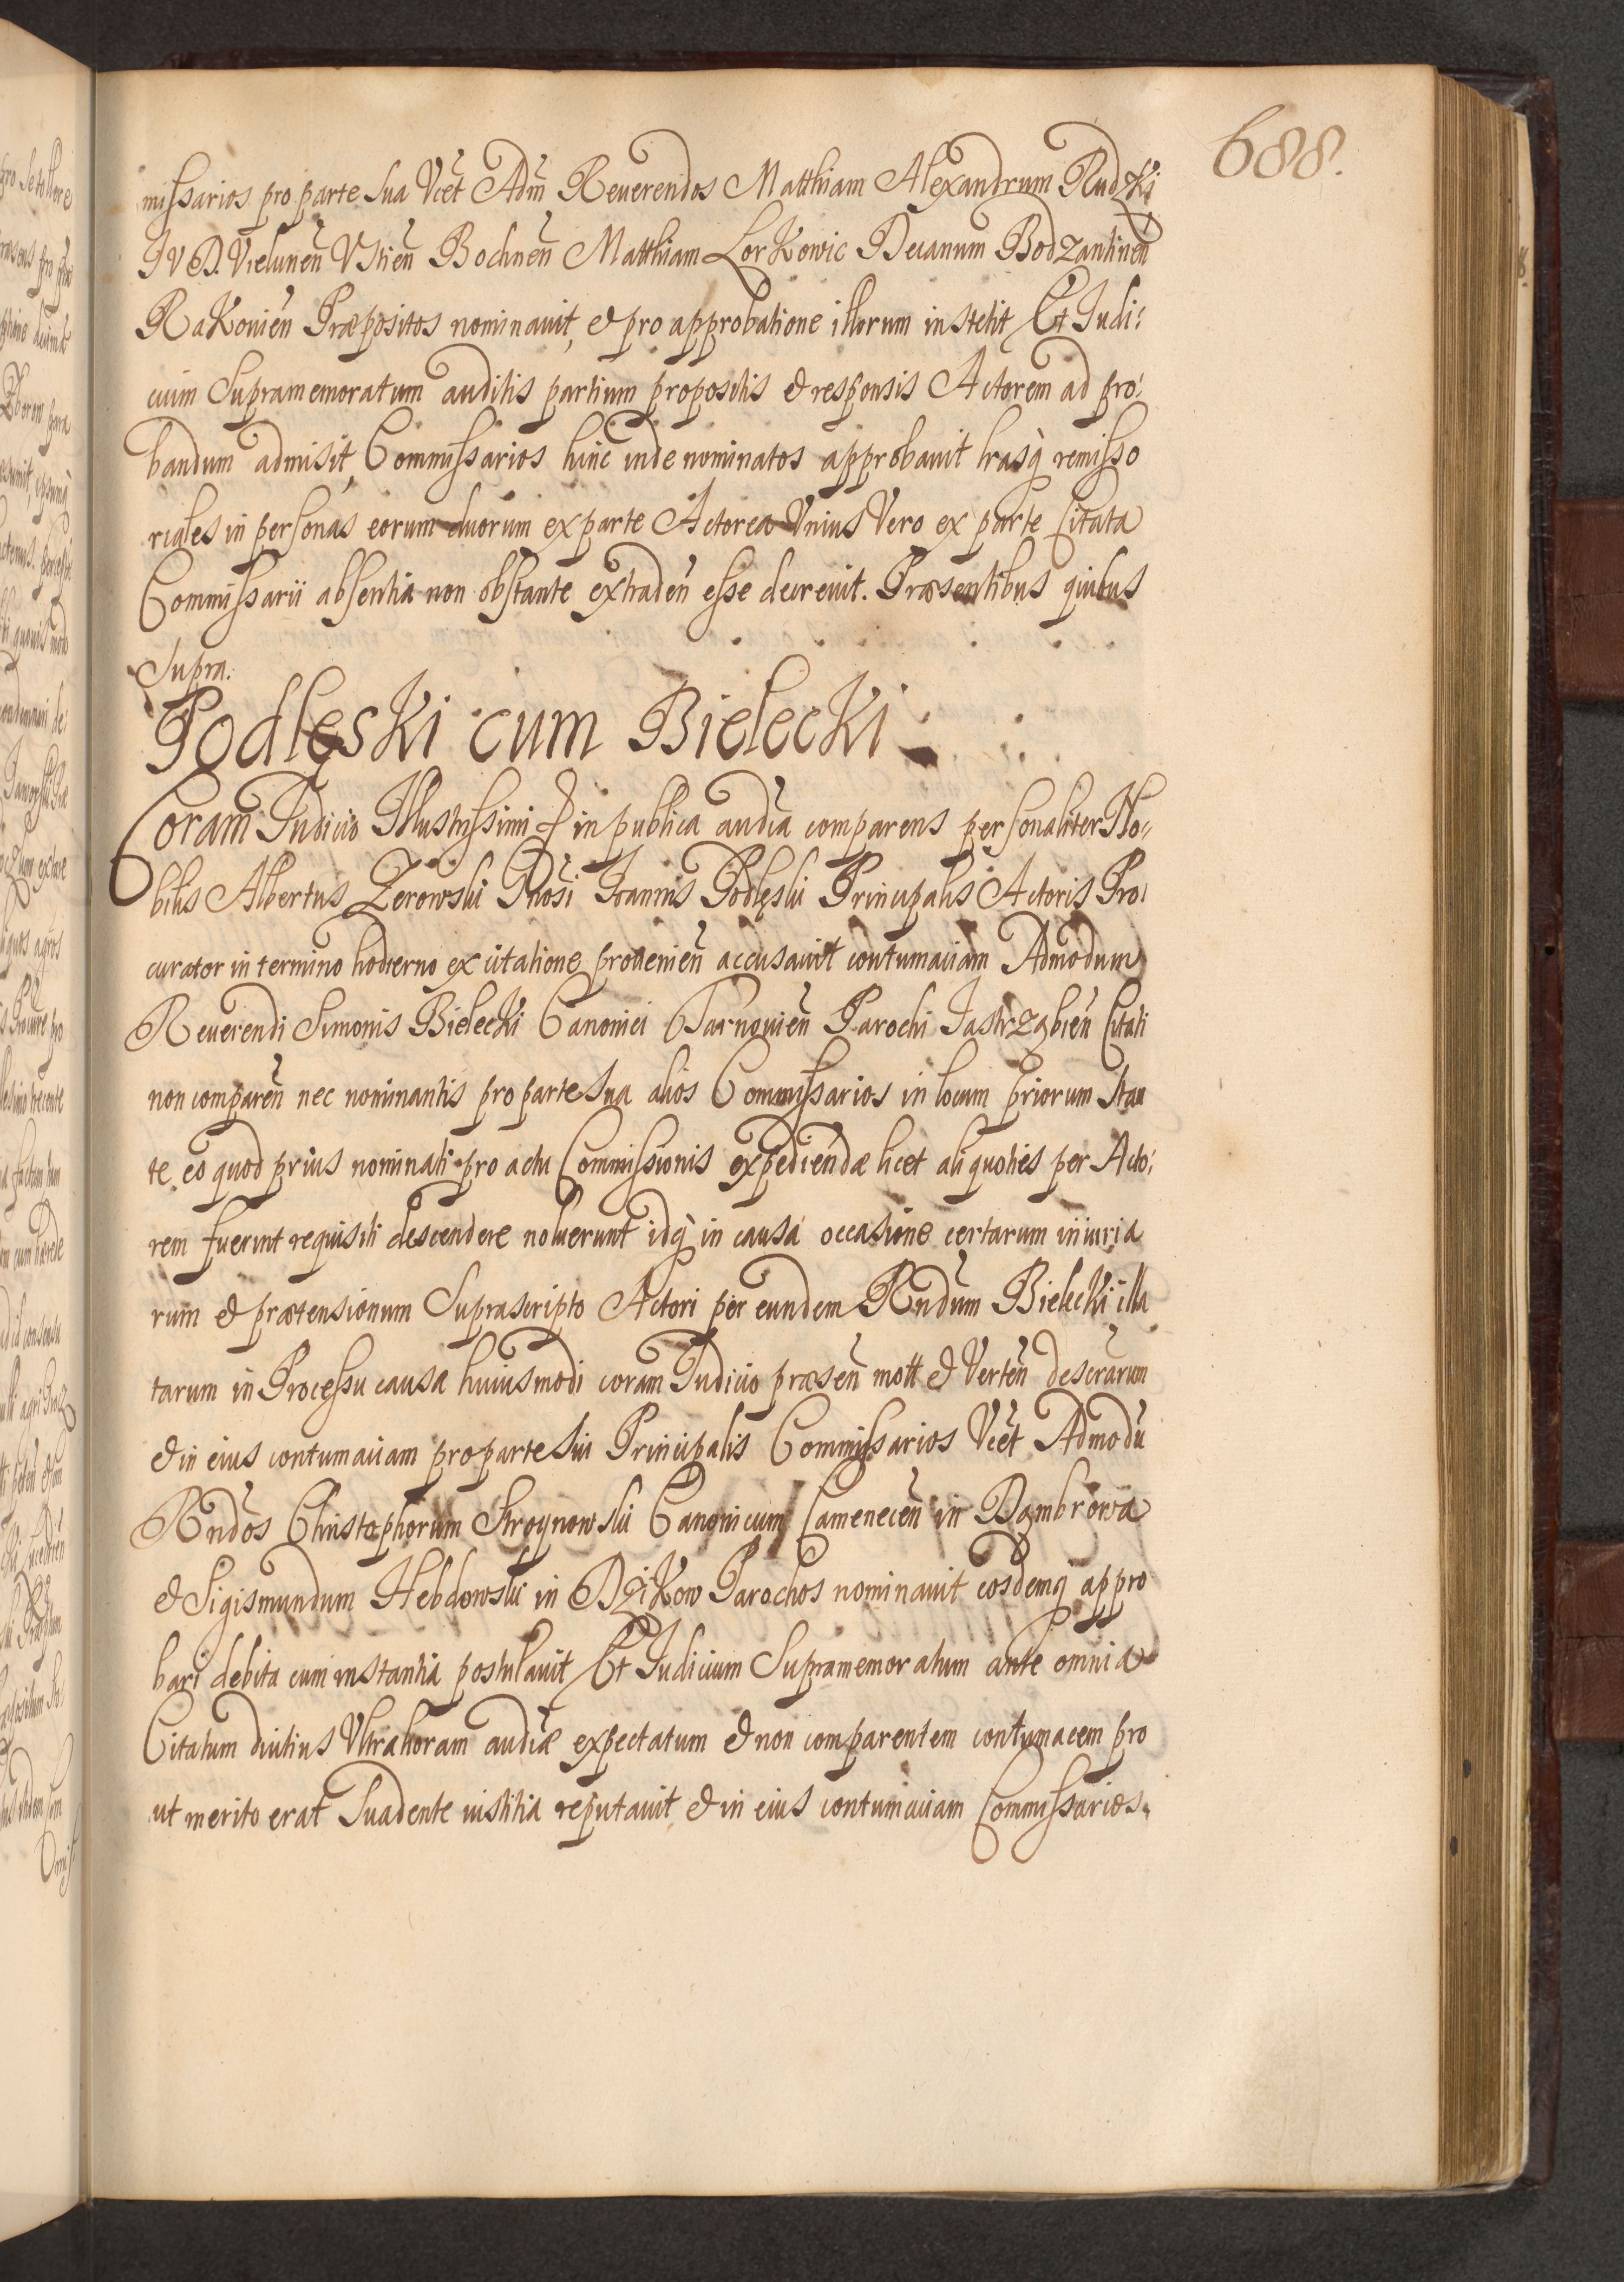 688.
missarios pro parte sua Vcet Adm Reuerendos Matthiam Alexandrum Rudzki
IVD. Vielunen Vstien Bochnen Matthiam LorKowic Decanum Bodzantinen
RaKouien Præpositos nominauit, et pro approbatione illorum institit Et Judi:
cium Supramemoratum auditis partium propositis et responsis Actorem ad pro:
bandum admisit, Commissarios hinc inde nominatos approbauit lrasq remisso
riales in personas eorum duorum ex parte Actorea Vnius Vero ex parte Citata
Commissarii absentia non obstante extraden esse decreuit. Præsentibus quibus
Supra.
PodlęsKi cum BielecKi
Coram Judicio Illustrissimi et in publica audia comparens personaliter No:
bilis Albertus Zerowski Gnosi Joannis Podlęski Principalis Actoris Pro:
curator in termino hodierno ex citatione prouenien accusauit contumaciam Admodum
Reuerendi Simonis BielecKi Canonici Tarnouien Parochi Jastrząbien Citati
non comparen nec nominantis pro parte sua alios Commissarios in locum priorum stan
te eo quod prius nominati pro actu Commissionis expediendæ licet aliquoties per Acto:
rem fuerint requisiti descendere noluerunt idq in causa occasione certarum iniuria
rum et prætensionum Suprascripto Actori per eundem Rndum BielecKi illa
tarum in Processu causæ huiusmodi coram Judicio præsen mott et Verten descrarum
et in eius contumaciam pro parte sui Principalis Commissarios Vcet Admodu
Rndos Christophorum Stroynowski Canonicum Camenecen in Dąmbrowa
et Sigismundum Hebdowski in DziKow Parochos nominauit eosdemq appro
bari debita cum instantia postulauit Et Judicium Supramemoratum ante omnia
Citatum diutius Vltra horam audiæ expectatum et non comparentem contumacem pro
ut merito erat Suadente iustitia reputauit, et in eius contumaciam Commissarios